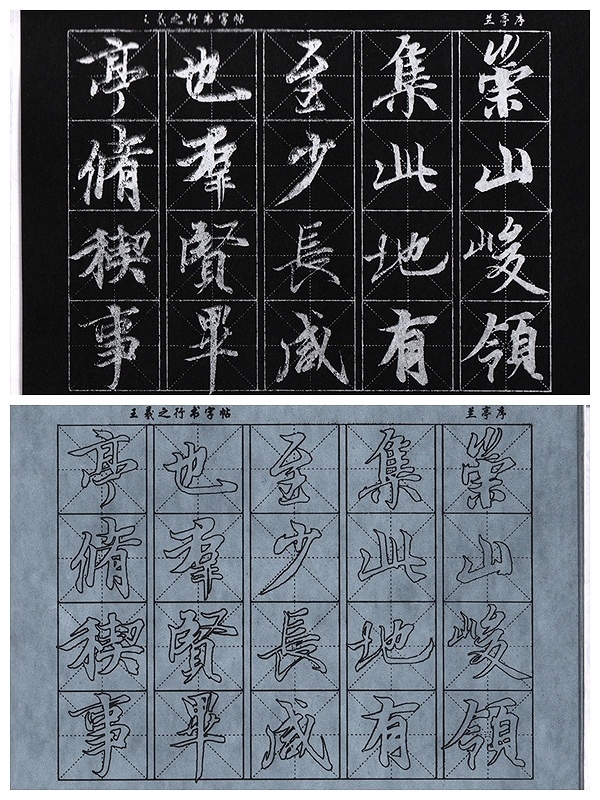 王羲之行书字帖
兰亭序
亭脩稧事
也羣賢畢
至少長咸
集此地有
崇山峻領
王羲之行书字帖
兰亭序
亭脩稧事
也羣賢畢
至少長咸
集此地有
崇山峻領